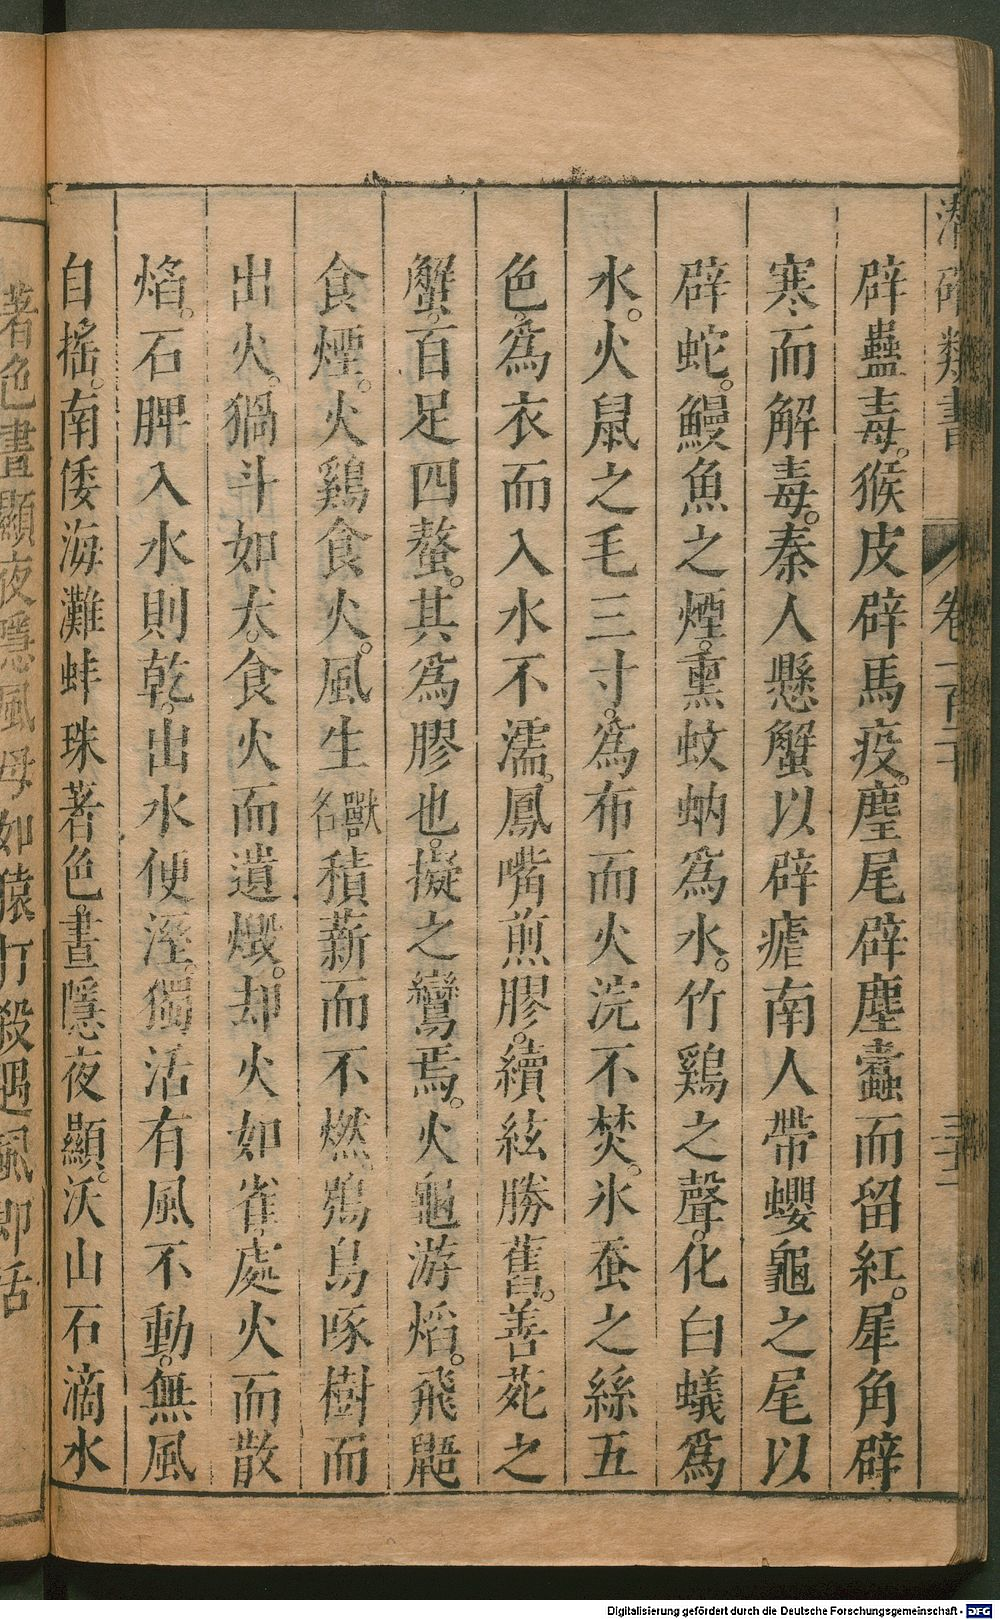 潛確類書 卷一百二十 三十二
辟蠱毒。猴皮辟馬疫。麈尾辟塵蠹而留紅。犀角辟
寒而解毒。秦人懸蟹以辟瘧南人帶蠳龜之尾以
辟蛇。鰻魚之煙。熏蚊蚋爲水。竹鷄之聲。化白蟻爲
水。火鼠之毛三寸。爲布而火浣不焚。氷蚕之絲五
色。爲衣而入水不濡。鳳嘴煎膠。續絃勝舊。善苑之
蟹。百足四螯。其爲膠也。擬之鸞焉。火龜游焰。飛鼯
食煙。火鷄食火。風生獸名積薪而不燃。鴞鳥啄樹而
出火。猾斗如犬。食火而遺燬。却火如雀。處火而散
焰。石脾入水則乾。出水便溼。獨活有風不動。無風
自搖。南倭海灘蚌珠著色晝隱夜顯。沃山石滴水
著色晝顯夜隱風母如猿打殺遇風即活
Digitalisierung gefördert durch die Deutsche Forschungsgemeinschaft - DFG